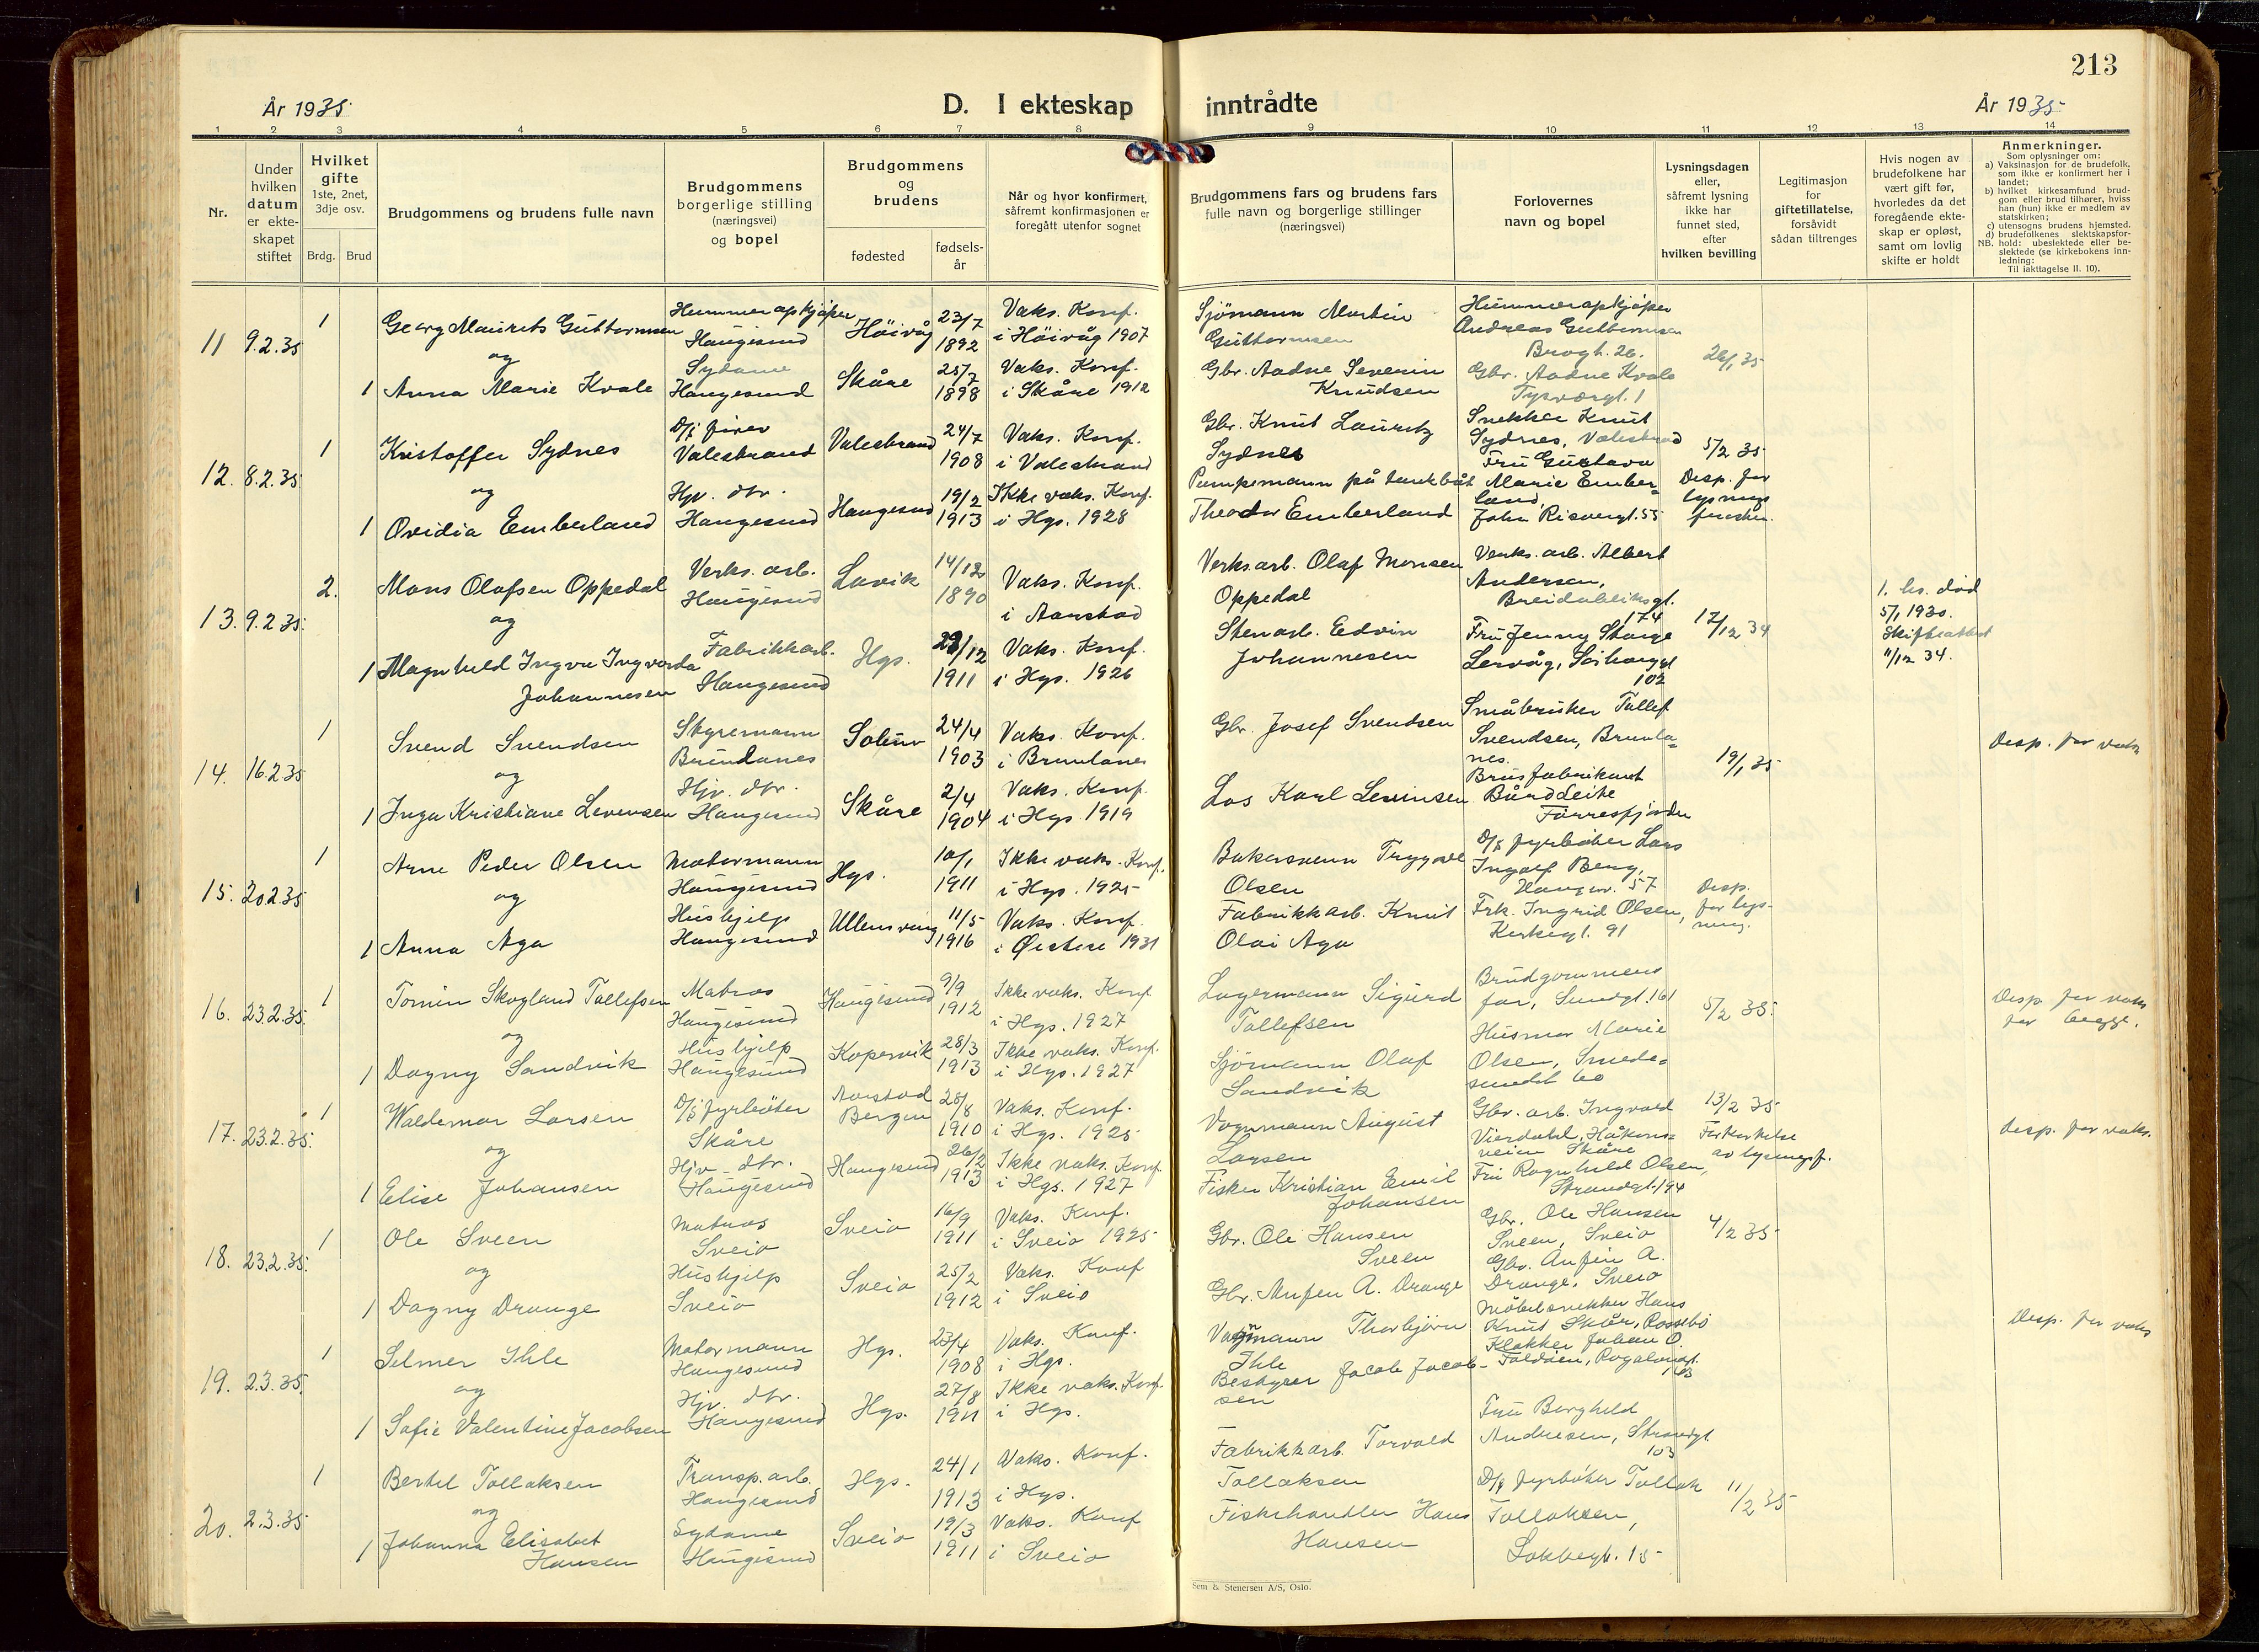 213
År 1935
D. I ekteskap inntrådte
År 1935
1 2 3 4 5 6 7 8 9 10 11 12 13 14
Nr.
Under
hvilken
datum
er ekte-
skapet
stiftet
Hvilket
gifte
1ste, 2net,
3dje osv.
Brdg. Brud
Brudgommens og brudens fulle navn
Brudgommens
borgerlige stilling
(næringsvei)
og bopel
Brudgommens
og
brudens
fødested
fødsels-
år
Når og hvor konfirmert,
såfremt konfirmasjonen er
foregått utenfor sognet
Brudgommens fars og brudens fars
fulle navn og borgerlige stillinger
(næringsvei)
Forlovernes
navn og bopel
Lysningsdagen
eller,
såfremt lysning
ikke har
funnet sted,
efter
hvilken bevilling
Legitimasjon
for
giftetillatelse,
forsåvidt
sådan tiltrenges
Hvis nogen av
brudefolkene har
vært gift før,
hvorledes da det
foregående ekte-
skap er opløst,
samt om lovlig
skifte er holdt
Anmerkninger.
Som oplysninger om:
a) Vaksinasjon for de brudefolk,
som ikke er konfirmert her i
landet;
b) hvilket kirkesamfund brud-
gom eller brud tilhører, hviss
han (hun) ikke er medlem av
statskirken;
c) utensogns brudens hjemsted.
d) brudefolkenes slektskapsfor-
NB. hold: ubeslektede eller be-
slektede (se kirkebokens inn-
ledning:
Til iakttagelse II. 10).
11 9.2.35
1 Georg Maurits Guttormsen
og
1 Anna Marie Kvale
Hummeropkjøper
Haugesund
Sydame
Haugesund
Höivåg
Skåre
23/7
1892
25/7
1898
Vaks. Konf.
i Höivåg 1907
Vaks. Konf.
i Skåre 1912
Sjömann Martin
Guttormsen
Gbr. Aadne Severin
Knudsen
Hummeropkjøper
Andreas Guttormsen
Brogt. 26.
Gbr. Aadne Kvale
Tysværgt. 1
26/1 35
12. 8.2.35
1 Kristoffer Sydnes
og
1 Ovidia Emberland
D/s fyrer
Valestrand
Hjv. dtr.
Haugesund
Valestrand
Haugesund
24/7
1908
19/2
1913
Vaks. Konf.
i Valestrand
Ikke vaks. Konf.
i Hgs. 1928
Gbr. Knut Lauritz
Sydnes
Pumpemann på tankbåt
Theodor Emberland
Snekker Knut
Sydnes, Valestrand
Fru Gustava
Marie Ember-
land,
John Risvergt. 55
5/2 35
Desp. for
lysnings
13. 9.2.35.
2. Mons Olafsen Oppedal
og
1 Magnhild Ingva Ingvarda
Johannesen
Verks. arb.
Haugesund
Fabrikkarb.
Haugesund
Lavik
Hgs.
14/12
1890
/12
1911
Vaks. Konf.
i Aarstad
Vaks. Konf.
i Hgs. 1926
Verks.arb. Olaf Monsen
Oppedal
Stenarb. Edvin
Johannesen
Verks. arb. Albert
Andersen,
Breidabliksgt.
174
Fru Jenny Stange
Lervåg, Sörhauggt
102
17/12 34
1. hs. död
5/1 1930.
Skifteattest
11/12 34.
14. 16.2.35
1 Svend Svendsen
og
1 Inga Kristiane Levinsen
Styremann
Brunlanes
Hjv. dtr.
Haugesund
Solum
Skåre
24/4
1903
2/4
1904
Vaks. Konf.
i Brunlanes
Vaks. Konf.
i Hgs. 1919
Gbr. Josef Svendsen
Los Karl Levinsen
Småbruker Tallef
Svendsen, Brunla-
nes.
Brusfabrikant
Bård Leite
Förresfjorden
19/1 35
Desp. for vaks
15. 20.2.35
1 Arne Peder Olsen
og
1 Anna Aga
Motormann
Haugesund
Hushjelp
Haugesund
Hgs.
Ullensvang
10/1
1911
11/5
1916
Ikke vaks. Konf.
i Hgs. 1925
Vaks. Konf.
i Øistese 1931
Bakersvenn Trygve
Olsen
Fabrikkarb. Knut
Olai Aga
D/s fyrböter Lars
Ingolf Berg,
Haugev. 57
Frk. Ingrid Olsen,
Kirkegt. 91
Desp.
for lys-
ning.
16. 23.2.35.
1 Tomin Skogland Tollefsen
og
1 Dagny Sandvik
Matros
Haugesund
Hushjelp
Haugesund
Haugesund
Kopervik
9/9
1912
28/3
1913
Ikke vaks. Konf
i Hgs. 1927
Ikke vaks. Konf.
i Hgs. 1927
Lagermann Sigurd
Tollefsen
Sjömann Olaf
Sandvik
Brudgommens
far, Sundgt. 161
Husmor Marie
Olsen, Smeda-
sundet 60
5/2 35.
Desp for vaks
for begge.
17. 23.2.35.
1 Waldemar Larsen
og
1 Elise Johansen
D/s fyrböter
Skåre
Hjv. dtr.
Haugesund
Aarstad
Bergen
Haugesund
28/8
1910
26/2
1913
Vaks. Konf.
i Hgs. 1925
Ikke vaks. Konf
i Hgs. 1927
Vognmann August
Larsen
Fisker Kristian Emil
Johansen
Gbr. arb. Ingvald
Vierdahl, Håkons-
veien Skåre
Fru Ragnhild Olsen,
Strandgt. 194
13/2 35
Forkortelse
av lysningsf.
Desp. for vaks.
18. 23.2.35.
1 Ole Sveen
og
1 Dagny Drange
Matros
Sveio
Hushjelp
Sveio
Sveio
Sveio
16/9
1911
25/2
1912
Vaks. Konf.
i Sveio 1925
Vaks. Konf
i Sveio
Gbr. Ole Hansen
Sveen
Gbr. Anfin A. Drange
Gbr. Ole Hansen
Sveen, Sveio
Gbr. Anfin A.
Drange, Sveio
4/2 35
19. 2.3.35.
1 Selmer Ihle
og
1 Sofie Valentine Jacobsen
Motormann
Haugesund
Hjv. dtr.
Haugesund
Hgs.
Hgs.
23/4
1908
27/8
1911
Vaks. Konf.
i Hgs.
Ikke vaks. Konf
i Hgs.
Vognmann Thorbjörn
Ihle
Bestyrer Jacob Jacob-
sen
Möbelsnekker Hans
Knut Skår, Rossebö
Klokker Johan O.
Foldöen, Rogalandgt.
103
Desp. for vaks
20. 2.3.35
1 Bertel Tollaksen
og
1 Johanna Elisabet
Hansen
Transp. arb.
Haugesund
Sydame
Haugesund
Hgs.
Sveio
24/1
1913
19/3
1911
Vaks. Konf.
i Hgs.
Vaks. Konf
i Sveio
Fabrikkarb. Torvald
Tollaksen
Fiskehandler Hans
Hansen
Fru Borghild
Andresen, Strandgt
103
D/s fyrböter Tollak
Tollaksen,
Sakkegt. 15
11/2 35
Sem & Stenersen A/S, Oslo.